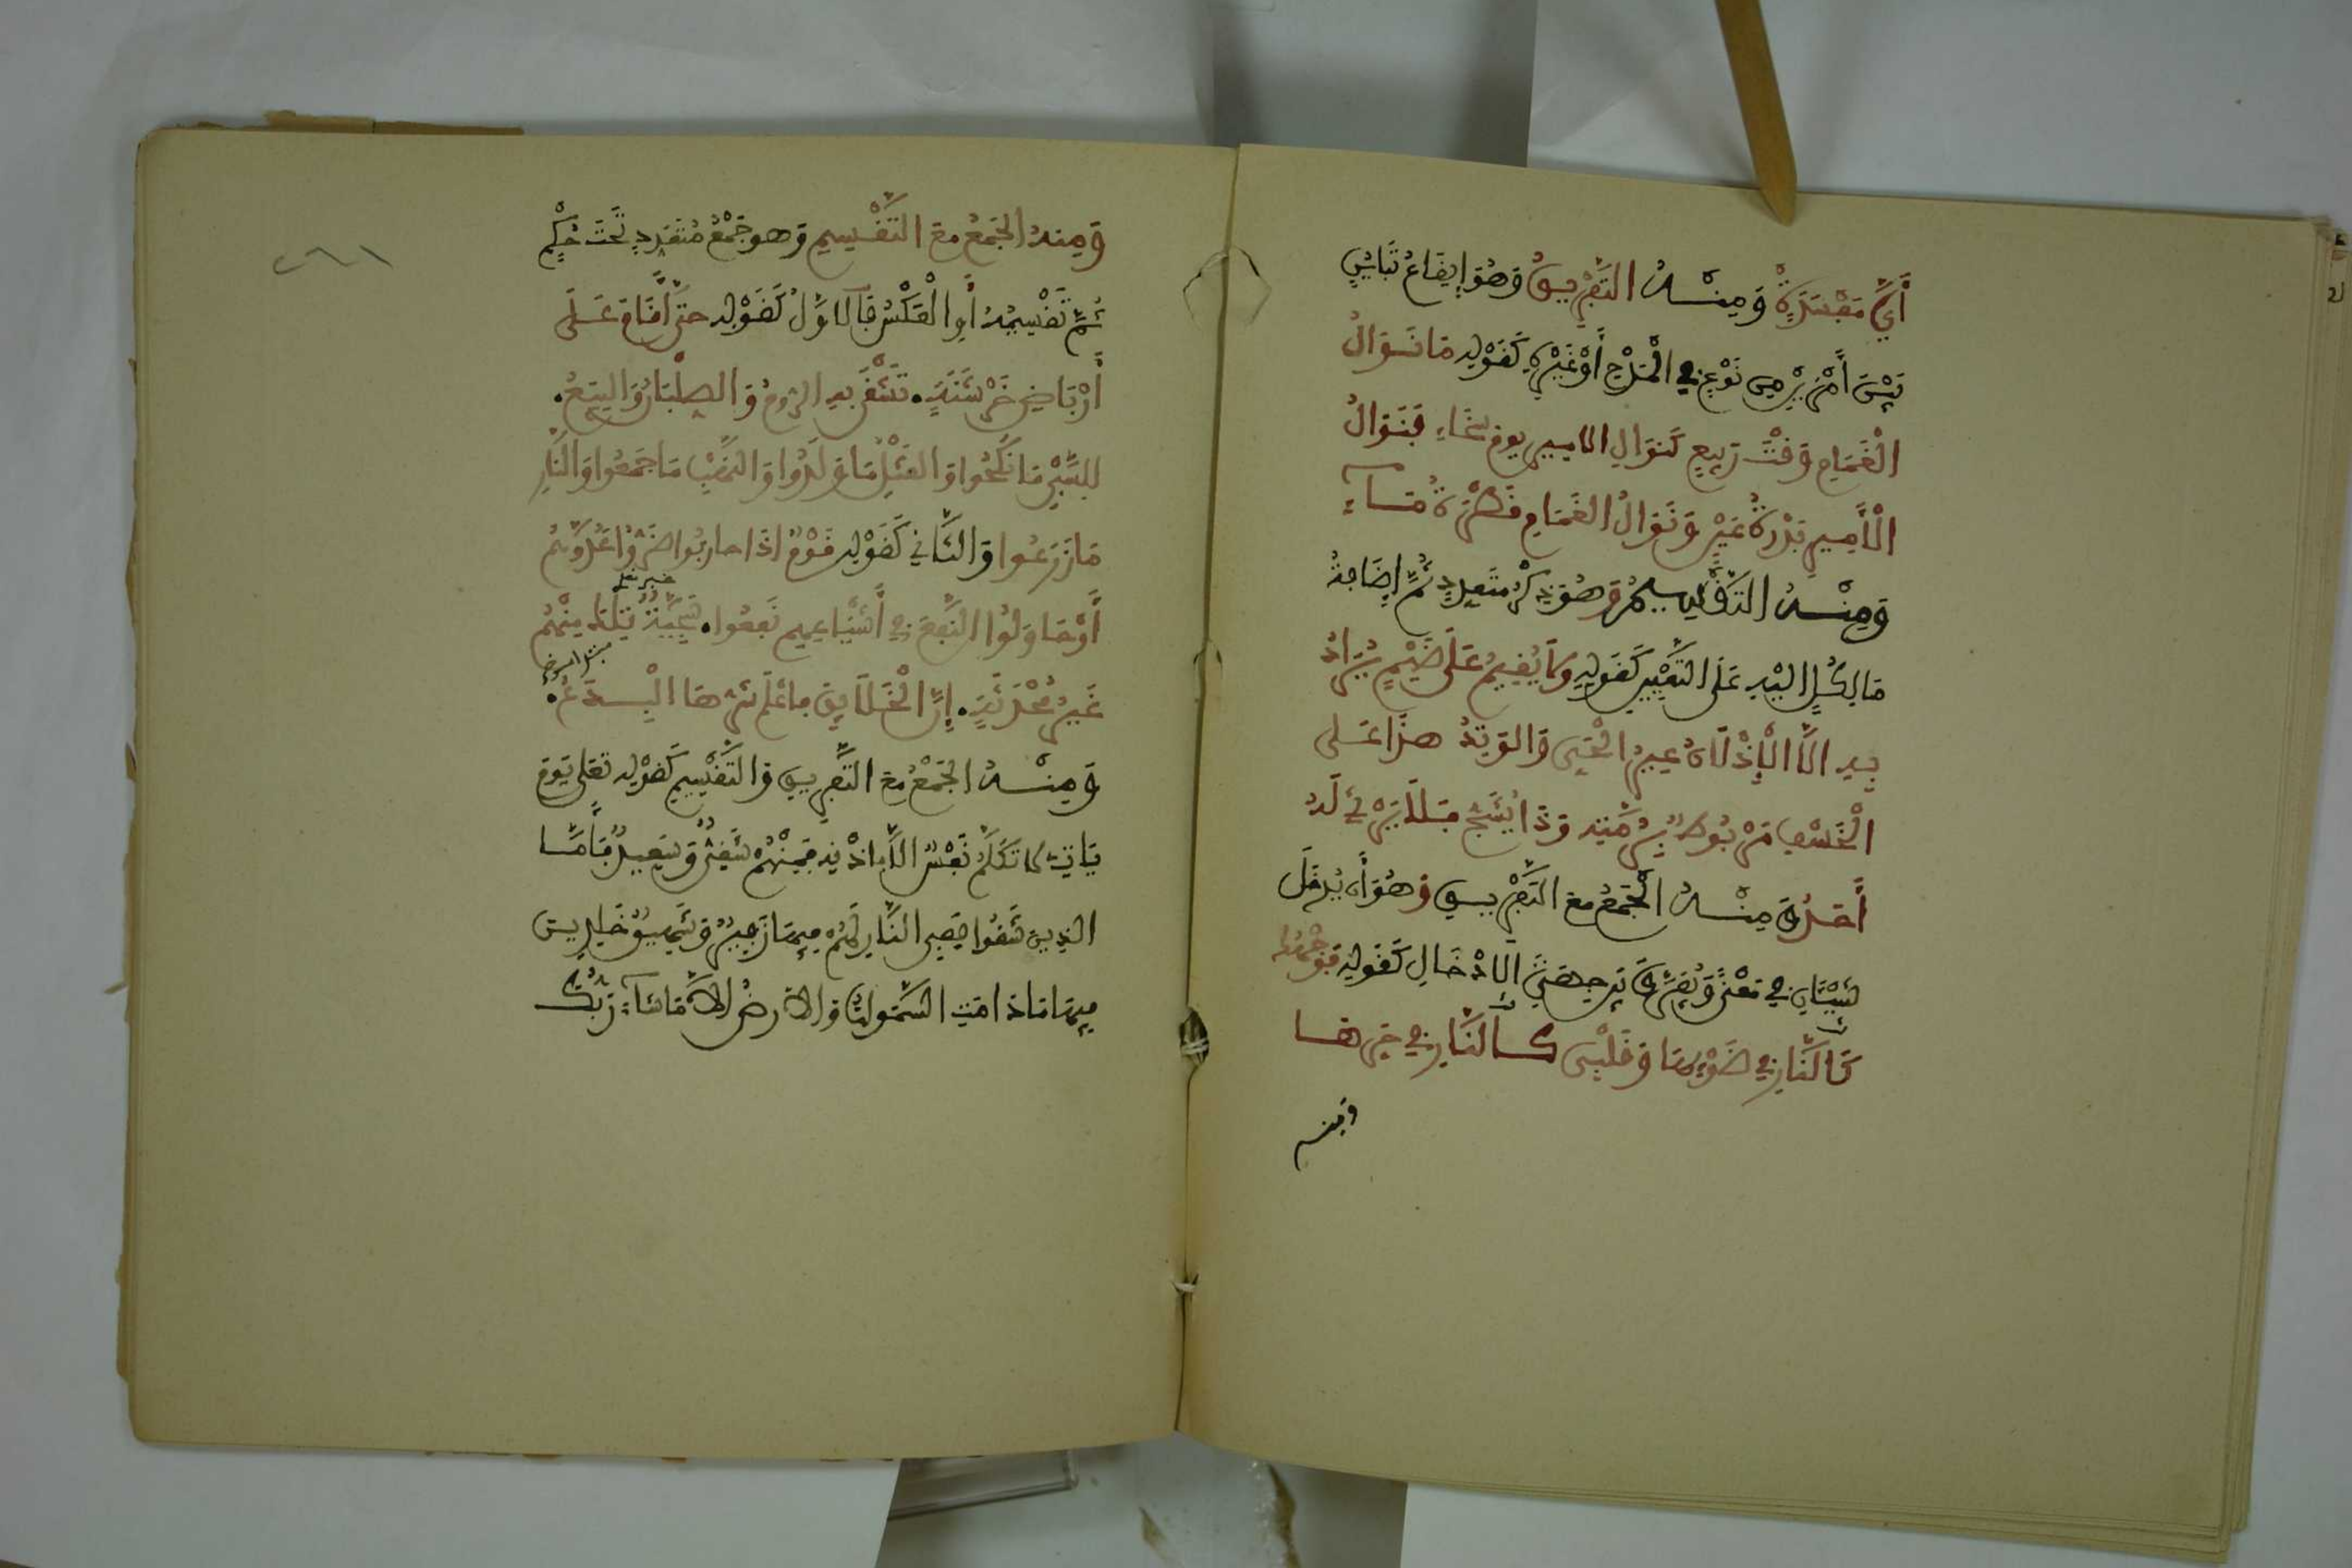 أَيَّ مَفْسَدَةْ وَمِنْهُ التَّفْرِيقُ وَهُوَ إِيقَاعُ تَبَايُنٍ
بَيْنَ أَمْرَيْنِ مِن نَوْعٍ فِي الْمَدْحِ أَوْ غَيْرِهِ كَقَوْلِهِ مَا نَوَالُ
الْغَمَامِ وَقْتَ رَبِيعٍ كَنَوَالِ الامِيرِ يوم سَخَاءِ فَنَوَالُ
الْأَمِيرِ بَدْرَةُ عَيْنٍ وَنَوَالُ الغَمَامِ قَطْرَةُ مَاءِ
وَمِنْهُ التَّقْسِيمُ وَهُوَ ذِكْرُ مُتَعَدِّدٍ ثُمَّ إِضَافَةُ
مَا لِكُلٍّ إِلَيْهِ عَلَى التَّعْيِينِ كَقَوْلِهِ وَلَا يُقِيمُ عَلَى ضَيْمٍ يُرَادُ
بِهِ الَّا الْأَذَلَّانِ عَيْرُ الْحَيِّ وَالوَتِدُ هذَا عَلَى
الْخَسْفِ مَرْبُوطٌ بِرُمَّتِهِ وَذَا يُشَجُّ فَلَا يَرْثِي لَهُ
أَحَدُ وَمِنْهُ الْجَمْعُ مَعَ التَّفْرِيقِ وَهُوَ أَن يُدْخَلَ
شَيْئَانِ فِي مَعْنًى وَيُفَرَّقَ بَيْنَ جِهَتَيِ الِادْخَالِ كَقَوْلِهِ فَوَجْهُكَ
كَالنَّارِ فِي ضَوْئِهَا وَقَلْبِي كَالنَّارِ فِي حَرِّهَا
ومنه
وَمِنهُ الجَمْعُ مَعَ التَّقْسِيمِ وَهو جَمْعُ مُتَعَدِّدٍ تَحْتَ حُكْمٍ
ثُمَّ تَقْسِيمُهُ أَوِ الْعَكْسُ فَالاوَّلُ كَقَوْلِهِ حتى أَقَامَ عَلَى
أَرْبَاضِ خَرْشَنَةٍ. تَشْقَى بِهِ الرُّومُ وَالصُّلْبَانُ وَالبِيَعُ.
لِلسَّبْيِ مَا نَكَحُوا وَالقَتْلِ مَا وَلَدُوا وَالنَّهْبِ مَا جَمَعُوا وَالنَّارِ
مَا زَرَعُوا وَالثَّانِي كَقَوْلِهِ قَوْمٌ اذَا حاربُوا ضَرُّوا عَدُوَّهُمُ
خبر تلك
أَوْ حَاوَلُوا النَّفْعَ فِي أَشْيَاعِهِمْ نَفَعُوا. سَجِيَّةٌ تِلْكَ مِنْهُمْ
غَيْرُ مُحْدَثَةٍ. إِنَّ الْخَلَائِقَ فاعْلَمْ شَرُّهَا الْبِدَعُ.
وَمِنْهُ الجَمْعُ مَعَ التَّفْرِيقِ وَالتَّقْسِيمِ كَقَوْلِهِ تَعَلى يَوْمَ
يَاتِ لَا تَكَلَّمُ نَفْسٌ الَّا بِاذْنِهِ فَمِنْهُمْ شَقِيٌّ وَسَعِيدٌ فَأَمَّا
الذِينَ شَقُوا فَفِي النَّارِ لَهُمْ فِيهَا زَفِيرٌ وَشَهِيقٌ خَالِدِينَ
فِيهَا مَا دَامَتِ السَّمَوَاتُ وَالارْضُ الَّا مَا شَاءَ رَبُّكَ